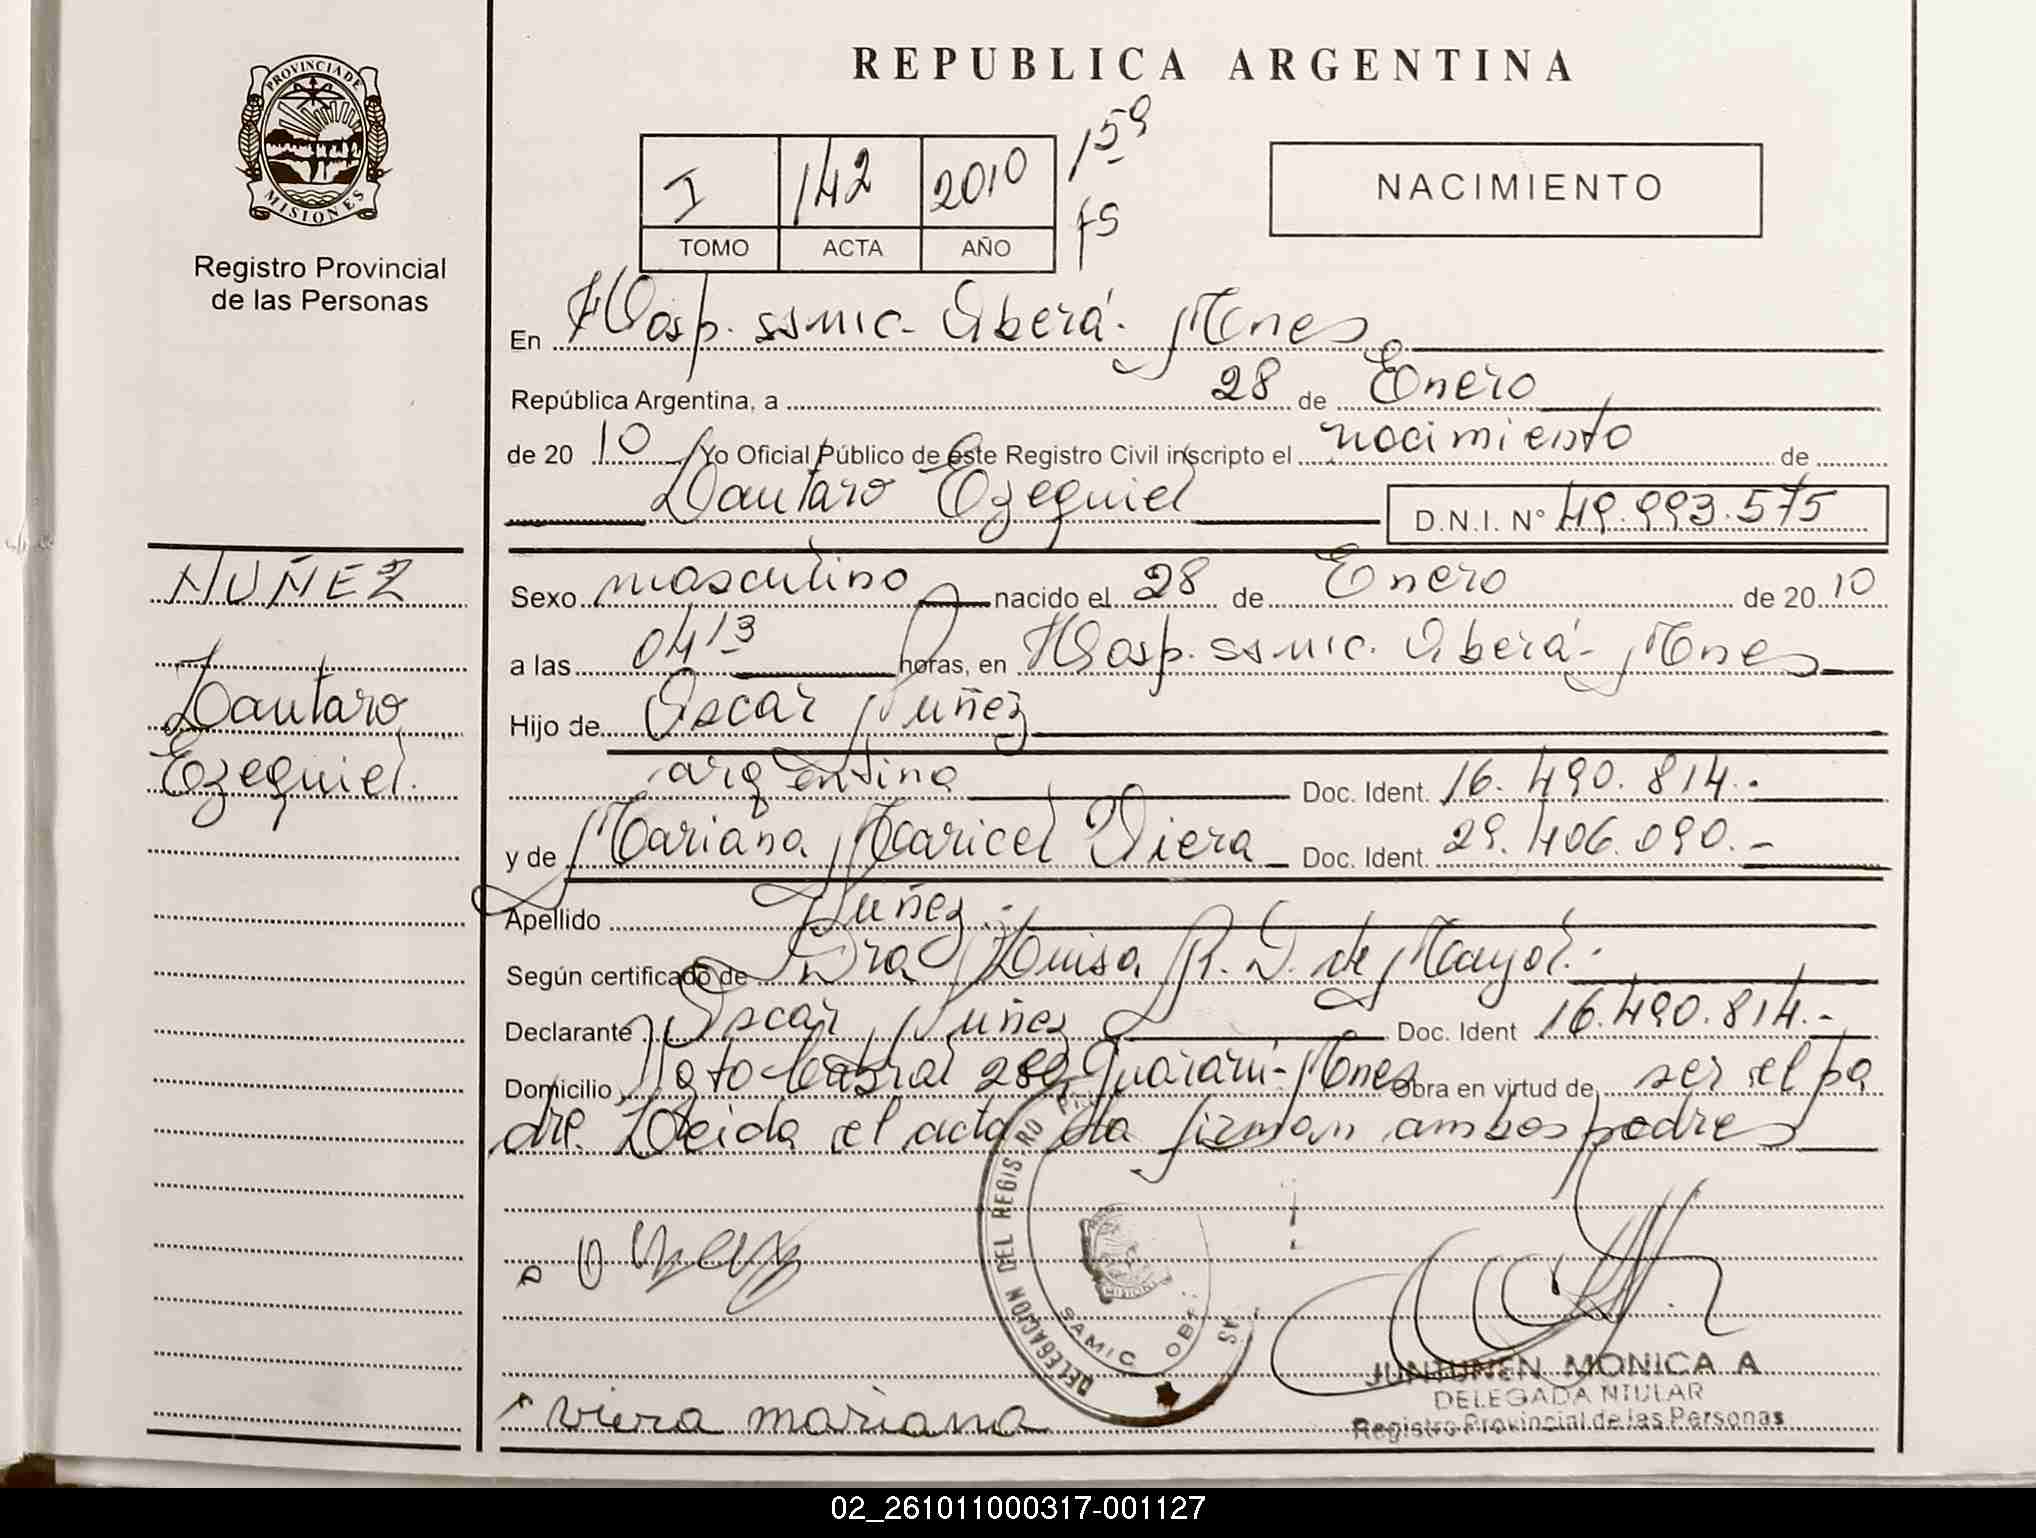 REPUBLICA ARGENTINA
PROVINCIA DE
MISIONES
Registro Provincial
de las Personas
I 142 2010 159
TOMO ACTA AÑO fs
NACIMIENTO
En Hosp. ssmic. Oberá. Mnes
República Argentina, a 28 de Enero
de 20 10 Yo Oficial Público de este Registro Civil inscripto el nacimiento de
Lautaro Ezequiel D.N.I. N° 49.993.575
NUÑEZ
Lautaro
Ezequiel.
Sexo masculino nacido el 28 de Enero de 20 10
a las 04 13 horas, en Hosp. ssmic. Oberá- Mnes
Hijo de Oscar Nuñez
argentino Doc. Ident. 16.490.814.-
y de Mariana Maricel Viera Doc. Ident. 29.406.090.-
Apellido Nuñez.-
Según certificado de Dra Luisa R. D. de Mayol.-
Declarante Oscar Nuñez Doc. Ident 16.490.814.-
Domicilio Cabral Guaraní-Mnes Obra en virtud de ser el pa
dre. Leida el acta la firman ambos padres
DELEGACION DEL REGIS RO
SAMIC OBE
viera mariana
JUNTUNEN MONICA A
DELEGADA TITULAR
Registro Provincial de las Personas
02_261011000317-001127